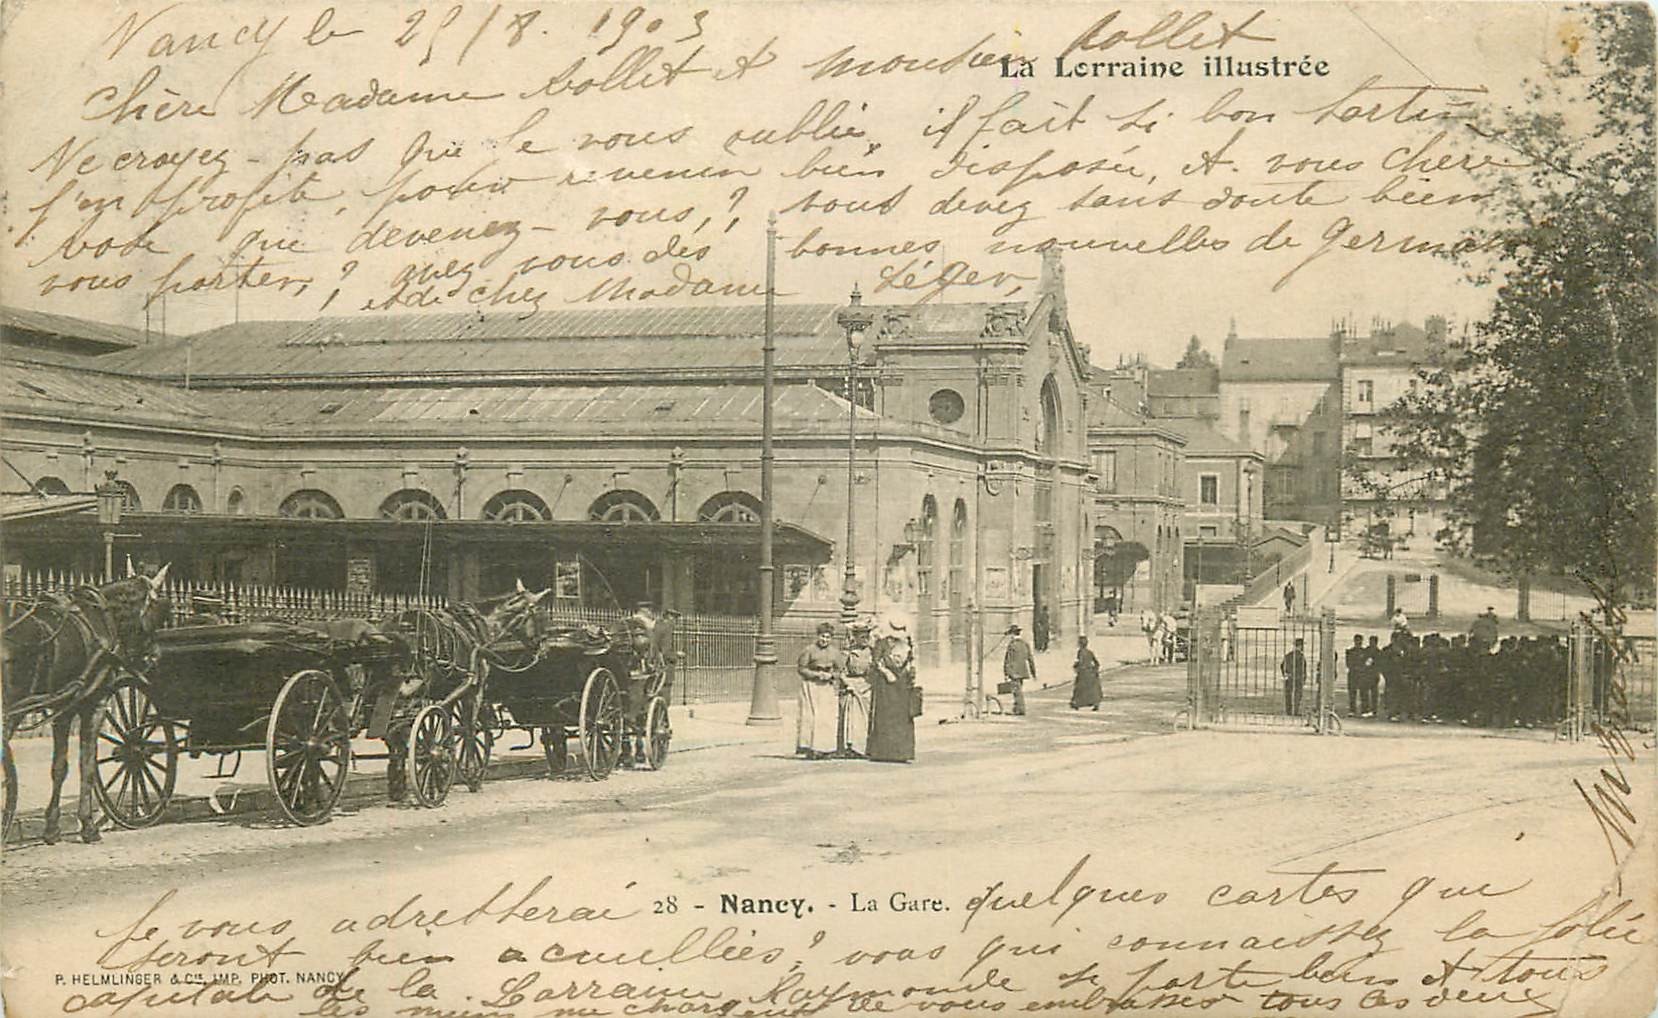 Nancy le 25/8. 1903
Chère Madame Rollet et monsieur Rollet
La Lorraine illustrée
Ne croyez-pas que je vous oublie, il fait si bon sortir
j'en profite, pour revenir bien disposée, et vous chère
que devenez-vous,? vous devez sans doute bien
vous porter,? avez vous des bonnes nouvelles de Germaine
et de chez Madame Léger,
28 - Nancy. - La Gare.
Je vous adresserai quelques cartes qui
seront bien accueillies? vous qui connaissez la jolie
P. HELMLINGER & Cie, IMP. PHOT. NANCY
capitale de la Lorraine Raymonde se porte bien et tous
les miens me chargent de vous embrasser tous les deux